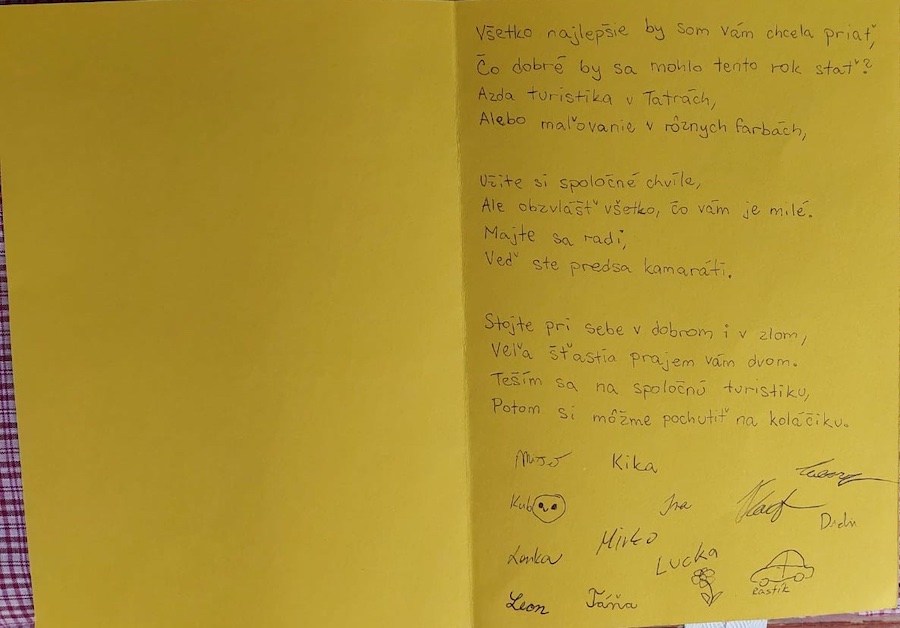 Všetko najlepšie by som vám chcela priať,
Čo dobré by sa mohlo tento rok stať?
Azda turistika v Tatrách,
Alebo maľovanie v rôznych farbách,
Užite si spoločné chvíle,
Ale obzvlášť všetko, čo vám je milé.
Majte sa radi,
Veď ste predsa kamaráti.
Stojte pri sebe v dobrom i v zlom,
Veľa šťastia prajem vám dvom.
Teším sa na spoločnú turistiku,
Potom si môžme pochutiť na koláčiku.
Kika
Kubo
Iva
Mirko
Lenka
Lucka
Rastík
Leon Táňa